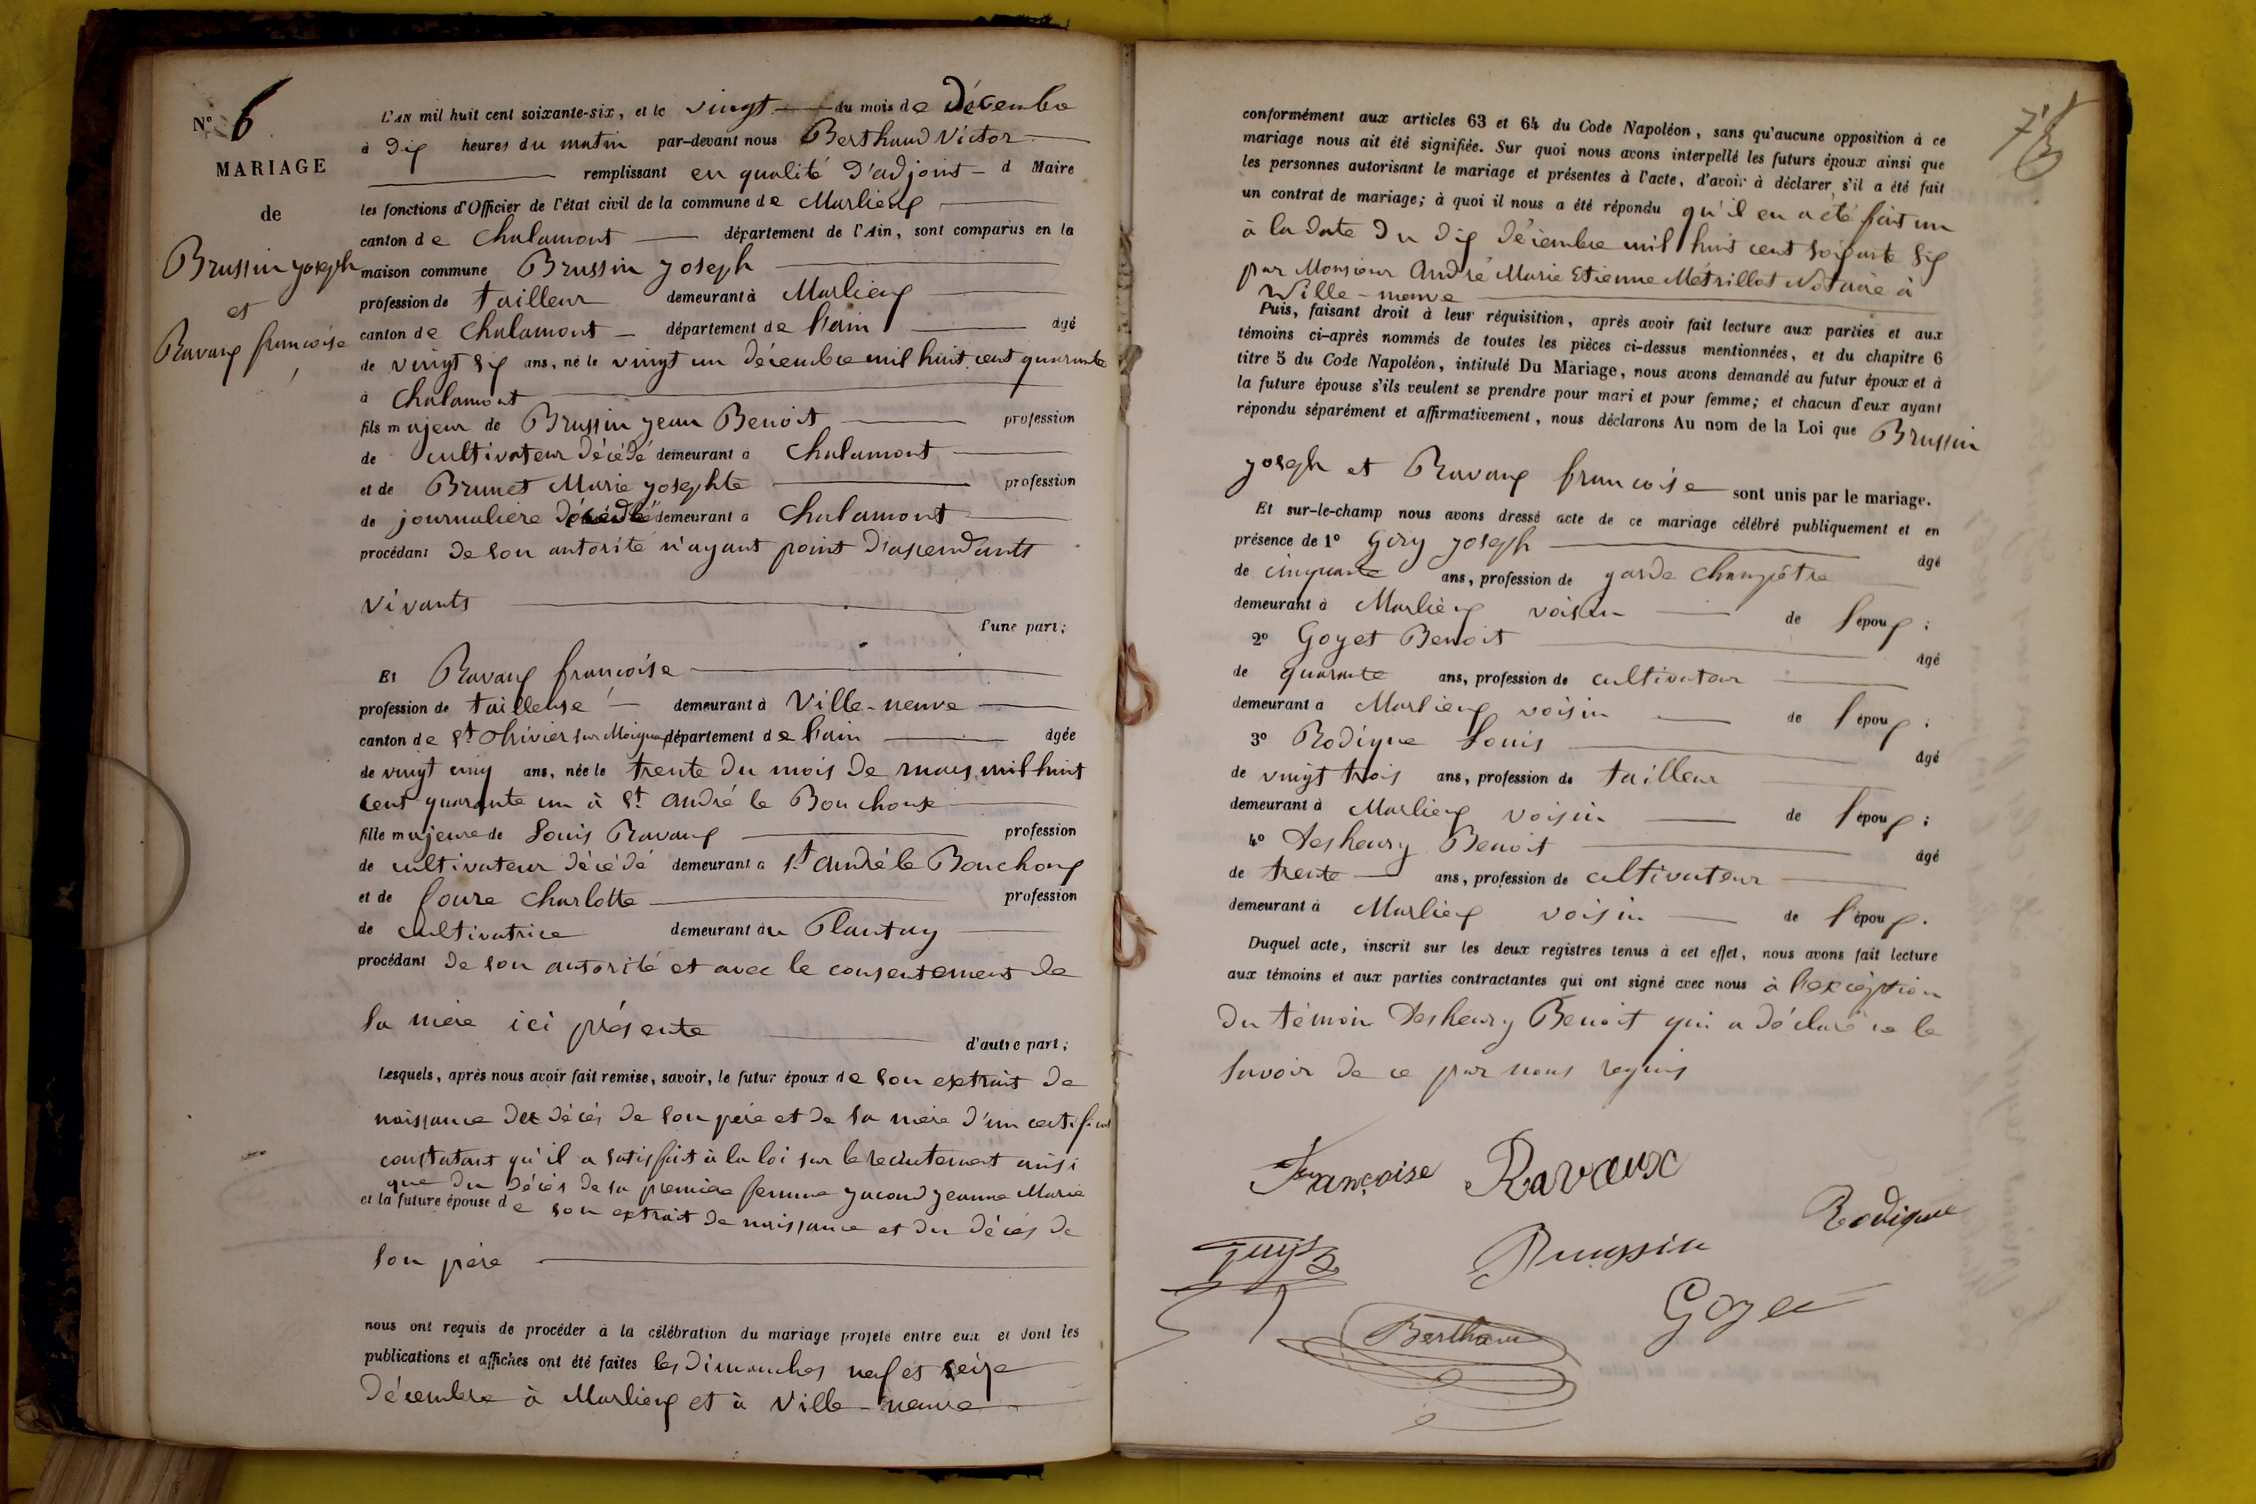 N° 6
MARIAGE
de
Brussin Joseph
et
Ravaux françoise
L'AN mil huit cent soixante-six, et le vingt du mois de Décembre
à dix heures du matin par-devant nous Berthaud Victor
remplissant en qualité d'adjoint d Maire
les fonctions d'Officier de l'état civil de la commune de Marlieux
canton de Chalamont département de l'Ain, sont comparus en la
maison commune Brussin Joseph
profession de tailleur demeurant à Marlieux
canton de Chalamont département de l'ain âgé
de vingt six ans, né le vingt un décembre mil huit cent quarante
à Chalamont
fils majeur de Brussin jean Benoit profession
de cultivateur décédé demeurant à Chalamont
et de Brunet Marie josephte profession
de journaliere décédée demeurant à Chalamont
procédant de son autorité n'ayant point d'ascendants
vivants
d'une part;
Et Ravaux françoise
profession de tailleuse demeurant à Ville-neuve
canton de St. Thivier sur Moignans département de l'ain âgée
de vingt cinq ans, née le trente du mois de mars mil huit
cent quarante un à St. andré le Bouchoux
fille majeure de Louis Ravaux profession
de cultivateur décédé demeurant à St. andré le Bouchoux
et de Charlotte profession
de cultivatrice demeurant au Plantay
procédant de son autorité et avec le consentement de
sa mère ici présente
d'autre part;
Lesquels, après nous avoir fait remise, savoir, le futur époux de son extrait de
naissance de décès de son père et de sa mère d'un certificat
constatant qu'il a satisfait à la loi sur le recrutement ainsi
que du décès de sa première femme jacond jeanne Marie
et la future épouse de son extrait de naissance et du décès de
son père
nous ont requis de procéder à la célébration du mariage projeté entre eux et dont les
publications et affiches ont été faites les dimanches neuf et seize
décembre à Marlieux et à Ville-neuve
conformément aux articles 63 et 64 du Code Napoléon, sans qu'aucune opposition à ce
mariage nous ait été signifiée. Sur quoi nous avons interpellé les futurs époux ainsi que
les personnes autorisant le mariage et présentes à l'acte, d'avoir à déclarer s'il a été fait
un contrat de mariage; à quoi il nous a été répondu qu'il en a été fait un
à la date du dix décembre mil huit cent soixante six
par Monsieur André Marie Etienne Métrillot Notaire à
Ville-neuve
Puis, faisant droit à leur réquisition, après avoir fait lecture aux parties et aux
témoins ci-après nommés de toutes les pièces ci-dessus mentionnées, et du chapitre 6
titre 5 du Code Napoléon, intitulé Du Mariage, nous avons demandé au futur époux et à
la future épouse s'ils veulent se prendre pour mari et pour femme; et chacun d'eux ayant
répondu séparément et affirmativement, nous déclarons Au nom de la Loi que Brussin
joseph et Ravaux françoise sont unis par le mariage.
Et sur-le-champ nous avons dressé acte de ce mariage célébré publiquement et en
présence de 1° Joseph âgé
de cinquante ans, profession de garde champêtre
demeurant à Marlieux voisin de l'époux;
2° Goyet Benoit âgé
de quarante ans, profession de cultivateur
demeurant à Marlieux voisin de l'époux;
3° Rodigue Louis âgé
de vingt trois ans, profession de tailleur
demeurant à Marlieux voisin de l'époux;
4° Desheury Benoit âgé
de trente ans, profession de cultivateur
demeurant à Marlieux voisin de l'époux.
Duquel acte, inscrit sur les deux registres tenus à cet effet, nous avons fait lecture
aux témoins et aux parties contractantes qui ont signé avec nous à l'exception
du témoin Desheury Benoit qui a déclaré ne le
savoir de ce par nous requis
Françoise Ravaux
Rodigue
Brussin
Goyet
Berthaud